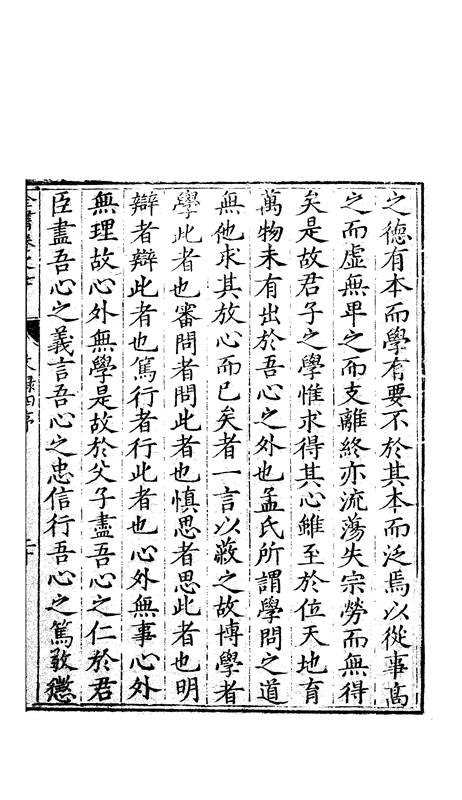 之德有本而學有要不於其本而泛焉以從事高
之而虛無卑之而支離終亦流蕩失宗勞而無得
矣是故君子之學惟求得其心雖至於位天地育
萬物未有出於吾心之外也孟氏所謂學問之道
無他求其放心而已矣者一言以蔽之故博學者
學此者也審問者問此者也慎思者思此者也明
辯者辯此者也篤行者行此者也心外無事心外
無理故心外無學是故於父子盡吾心之仁於君
臣盡吾心之義言吾心之忠信行吾心之篤敬懲
全書卷之七 文錄四序